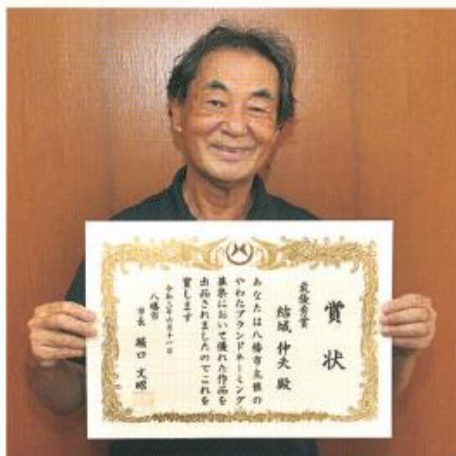 賞状
最優秀賞
結城 伸夫 殿
あなたは八幡市主催の
やわたブランドネーミング
募集において優れた作品を
出品されましたのでこれを
賞します
令和三年六月十一日
八幡市
市長 堀口 文昭